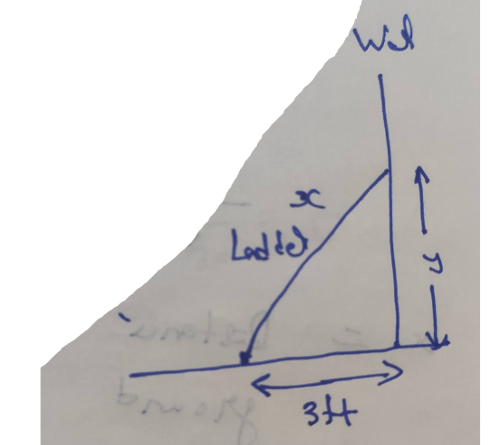 Wall
x
Ladder
y
3ft